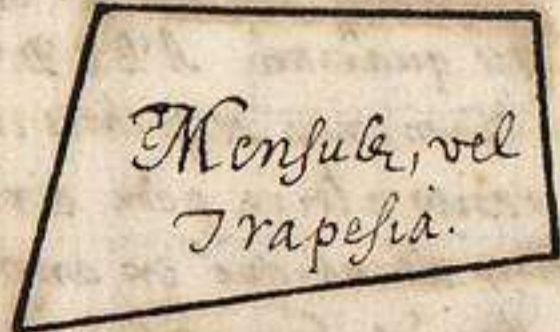 Mensulæ, vel
Trapesia.